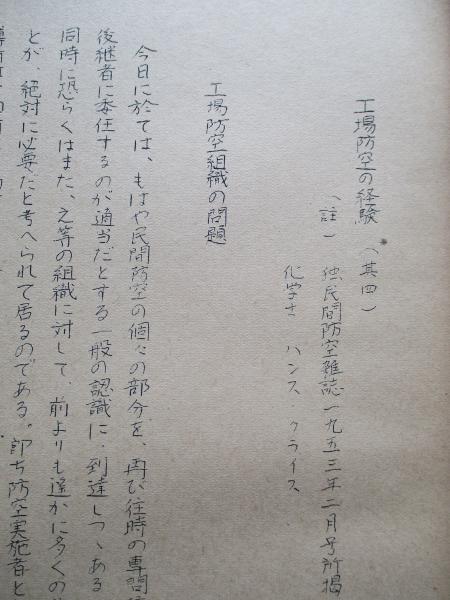 工場防空の経験 （其四）
（註） 独民間防空雑誌一九五三年二月号所掲
化学士 ハンス・クライス
工場防空組織の問題
今日に於ては、もはや民間防空の個々の部分を、再び往時の専門
後継者に委任するのが適当だとする一般の認識に、到達しつゝある
同時に恐らくはまた、之等の組織に対して、前よりも遥かに多くの
とが、絶対に必要だと考へられて居るのである。即ち防空実施者と